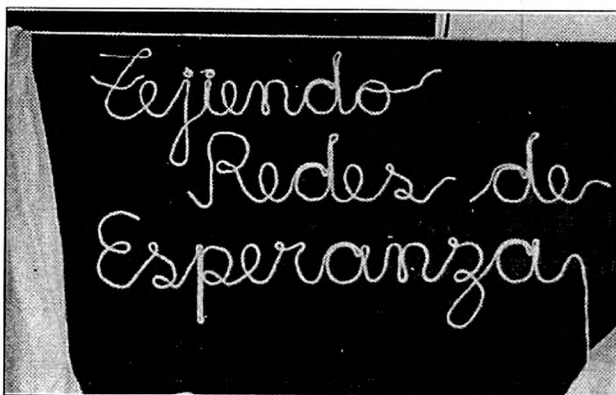 Tejiendo
Redes de
Esperanza